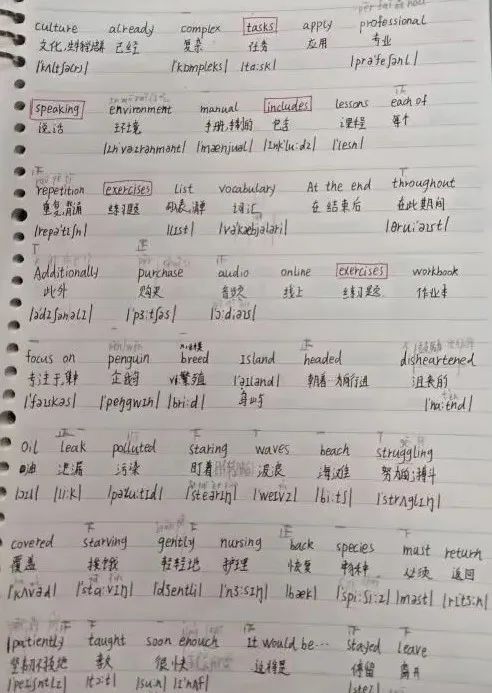 culture already complex tasks apply professional
文化 已经 复杂 任务 应用 专业
/kʌltʃə(r)/ /kɒmpleks/ /tɑ:sk/ /prəˈfeʃənl/
speaking environment manual includes lessons each of
说话 环境 手册 包含 课程 每个
/ɪnˈvaɪrənmənt/ /mænjuəl/ /ɪnkˈlu:dz/ /ˈlesn/
repetition exercises list vocabulary At the end throughout
重复,背诵 练习题 列表,清单 词汇 在结束后 在此期间
/repəˈtɪʃn/ /lɪst/ /vəˈkæbjələri/ /θru:ˈaʊt/
Additionally purchase audio online exercises workbook
此外 购买 音频 线上 练习题 作业本
/ədɪʃənəlɪ/ /ˈpɜ:tʃəs/ /ɔ:dɪəʊ/
focus on penguin breed Island headed disheartened
专注于,集中 企鹅 繁殖 /ˈaɪland/ 朝着…方向行进 沮丧的
/ˈfəʊkəs/ /ˈpeŋgwɪn/ /bri:d/ 岛屿 /ˈhɑ:tnd/
Oil leak polluted staring waves beach struggling
油 泄漏 污染 盯着 波浪 海滩 努力的;搏斗
/ɔɪl/ /li:k/ /pəlu:tɪd/ /ˈsteərɪŋ/ /ˈweɪvz/ /bi:tʃ/ /ˈstrʌglɪŋ/
covered starving gently nursing back species must return
覆盖 挨饿 轻轻地 护理 恢复 物种 必须 返回
/kʌvəd/ /ˈstɑ:vɪŋ/ /dʒentli/ /ˈnɜ:sɪŋ/ /bæk/ /ˈspi:ʃi:z/ /məst/ /rɪtɜ:n/
patiently taught soon enouch It would be… stayed leave
坚韧不拔地 教 很快 这将是 停留 离开
/peɪʃntlɪ/ /tɔ:t/ /su:n/ /ɪˈnʌf/